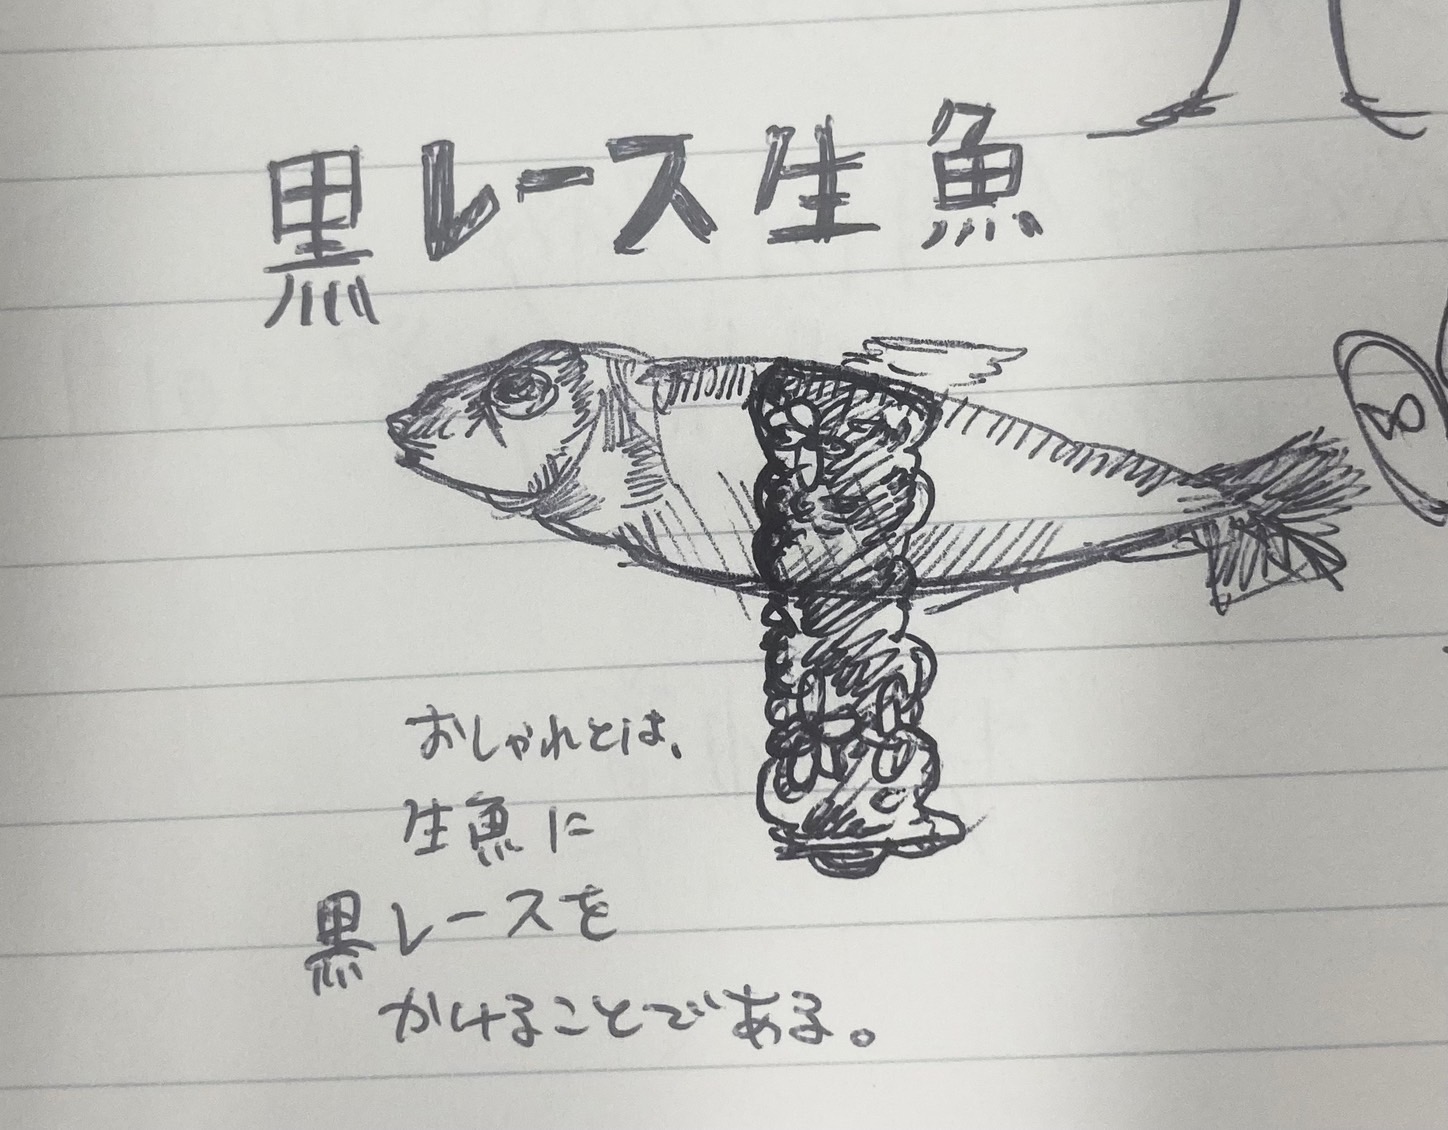 黒レース生魚
おしゃれとは、
生魚に
黒レースを
かけることである。